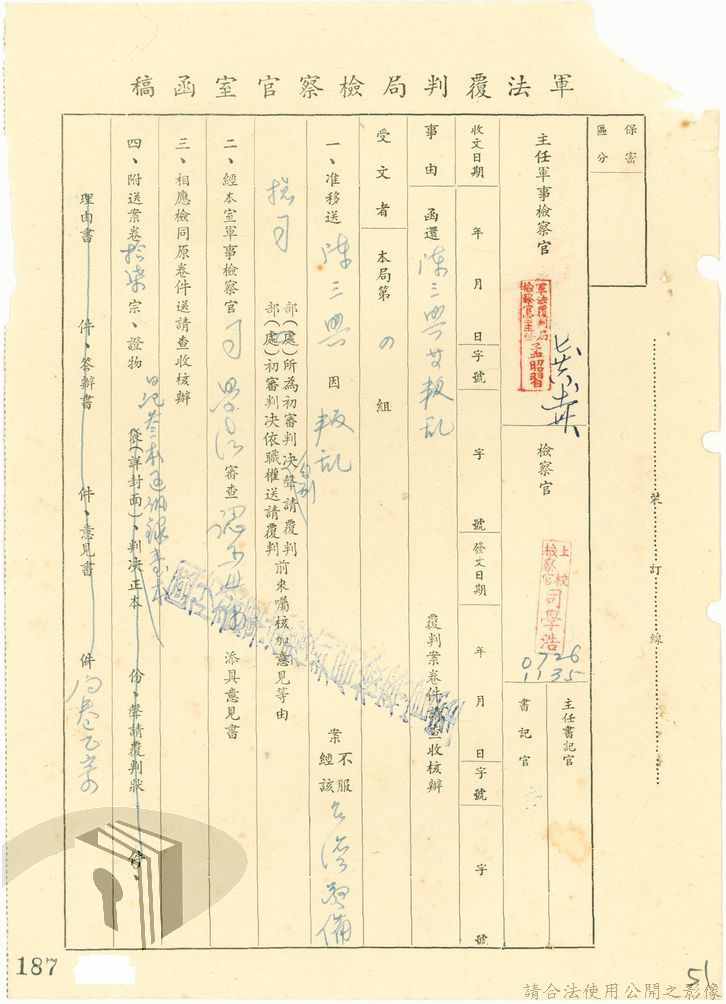 軍法覆判局檢察官室函稿
保密
區分
裝訂線
主任軍事檢察官
軍法覆判局
檢察官室主任
孟昭習
檢察官
上校
檢察官
司學浩
0726
1135
主任書記官
書記官
收文日期 年 月 日 字號 字 號 發文日期 年 月 日 字號 字 號
事由 函還陳三興等叛乱 覆判案卷件請查收核辦
受文者 本局第 組
一、准移送陳三興因叛乱 案不服經該台灣警備
總司 部(處)所為初審判決聲請覆判
部(處)初審判決依職權送請覆判 前來囑核加意見等由
二、經本室軍事檢察官司學浩審查認為毋庸添具意見書
三、相應檢同原卷件送請查收核辦
四、附送案卷拾柒宗、證物 袋(詳封面)、判決正本 份、聲請覆判狀 件、
理由書 件、答辯書 件、意見書 件
187
51
請合法使用公開之影像